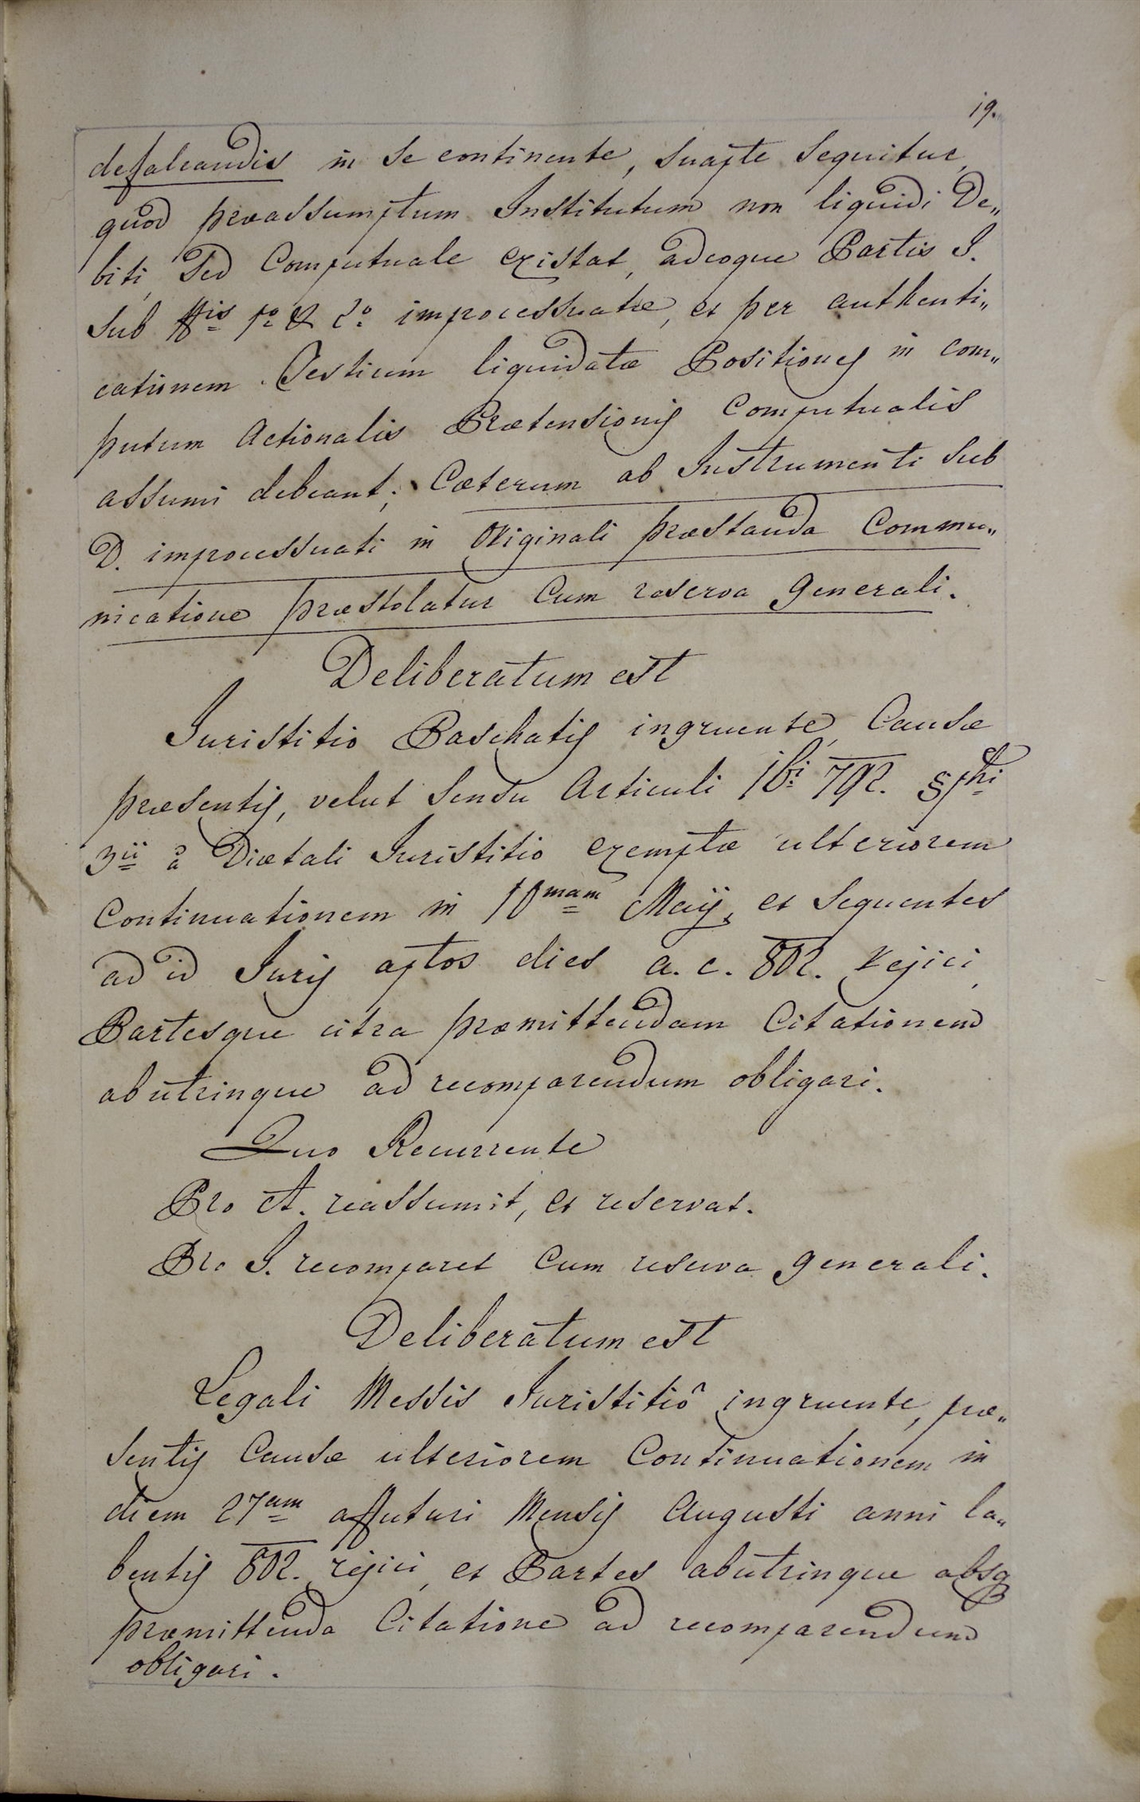 19.
defalcandis in se continente, suapte sequitur,
quod præassumptum Institutum non liquidi De„
biti, sed Computuale existat, adeoque Partis I.
sub ##is 1o & 2o improcessuatæ, et per authenti„
cationem Testium liquidatæ Positiones in com„
putum Actionalis Prætensionis Computualis
assumi debeant; Cæterum ab Instrumenti sub
D. improcessuati in Originali præstanda Commu„
nicatione præstolatur Cum reserva generali.
Deliberatum est
Juristitio Paschatis ingruente, Causæ
præsentis, velut sensu Articuli 16i 792. §phi
3ii à Diætali Juristitio exemptæ ulteriorem
Continuationem in 10mam Maÿ, et sequentes
ad id Juris aptos dies a. c. 802. rejici,
Partesque citra præmittendam Citationem
abutrinque ad recomparendum obligari.
Quo Recurrente
Pro A. reassumit, et reservat.
Pro I. recomparet Cum reserva generali.
Deliberatum est
Legali Messis Juristitiô ingruente, præ„
sentis Causæ ulteriorem Continuationem in
diem 27am affuturi Mensis Augusti anni la„
bentis 802. rejici, et Partes abutrinque absq
præmittenda Citatione ad recomparendum
obligari.